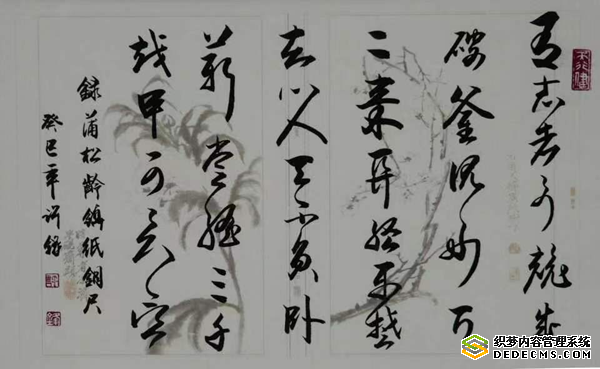 天行健
有志者事競成
破釜沉舟百
二秦关终属楚
苦心人天不负卧
薪尝胆三千
越甲可吞吴
録蒲松齡鎮紙銅尺
癸巳年許録
织梦内容管理系统
DEDECMS.COM